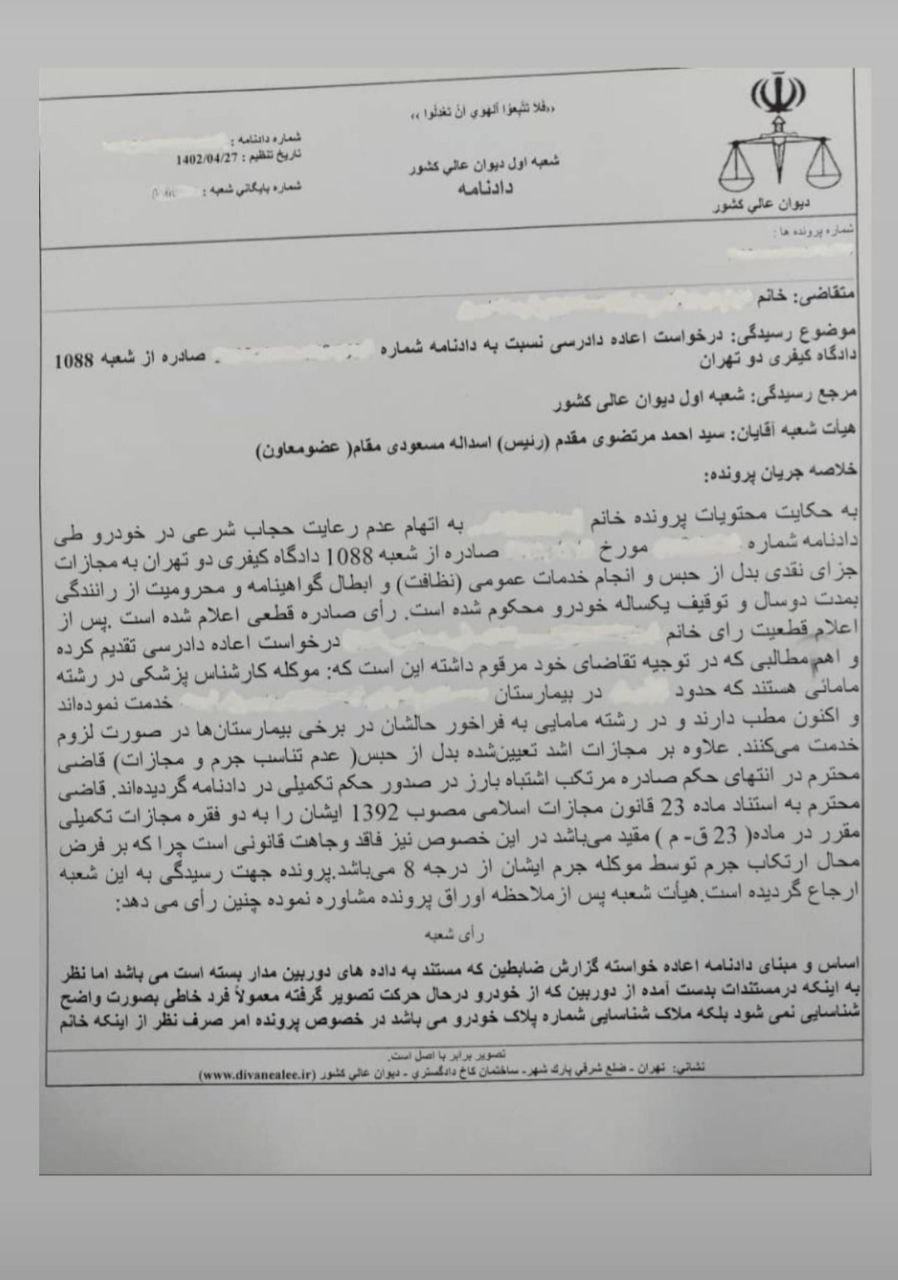 «فَلا تتَّبِعوُا اَلهَوي اَنْ تَعدِلُوا»
شعبه اول دیوان عالي کشور
دادنامه
شماره دادنامه :
تاریخ تنظیم : 1402/04/27
شماره بایگاني شعبه :
دیوان عالي کشور
شماره پرونده ها :
متقاضی: خانم
موضوع رسیدگی: درخواست اعاده دادرسی نسبت به دادنامه شماره صادره از شعبه 1088
دادگاه کیفری دو تهران
مرجع رسیدگی: شعبه اول دیوان عالی کشور
هیأت شعبه آقایان: سید احمد مرتضوی مقدم (رئیس) اسداله مسعودی مقام( عضومعاون)
خلاصه جریان پرونده:
به حکایت محتویات پرونده خانم به اتهام عدم رعایت حجاب شرعی در خودرو طی
دادنامه شماره مورخ صادره از شعبه 1088 دادگاه کیفری دو تهران به مجازات
جزای نقدی بدل از حبس و انجام خدمات عمومی (نظافت) و ابطال گواهینامه و محرومیت از رانندگی
بمدت دوسال و توقیف یکساله خودرو محکوم شده است. رأی صادره قطعی اعلام شده است .پس از
اعلام قطعیت رای خانم درخواست اعاده دادرسی تقدیم کرده
و اهم مطالبی که در توجیه تقاضای خود مرقوم داشته این است که: موکله کارشناس پزشکی در رشته
مامائی هستند که حدود در بیمارستان خدمت نموده‌اند
و اکنون مطب دارند و در رشته مامایی به فراخور حالشان در برخی بیمارستان‌ها در صورت لزوم
خدمت می‌کنند. علاوه بر مجازات اشد تعیین‌شده بدل از حبس( عدم تناسب جرم و مجازات) قاضی
محترم در انتهای حکم صادره مرتکب اشتباه بارز در صدور حکم تکمیلی در دادنامه گردیده‌اند. قاضی
محترم به استناد ماده 23 قانون مجازات اسلامی مصوب 1392 ایشان را به دو فقره مجازات تکمیلی
مقرر در ماده( 23 ق- م ) مقید می‌باشد در این خصوص نیز فاقد وجاهت قانونی است چرا که بر فرض
محال ارتکاب جرم توسط موکله جرم ایشان از درجه 8 می‌باشد.پرونده جهت رسیدگی به این شعبه
ارجاع گردیده است.هیأت شعبه پس ازملاحظه اوراق پرونده مشاوره نموده چنین رأی می دهد:
رأی شعبه
اساس و مبنای دادنامه اعاده خواسته گزارش ضابطین که مستند به داده های دوربین مدار بسته است می باشد اما نظر
به اینکه درمستندات بدست آمده از دوربین که از خودرو درحال حرکت تصویر گرفته معمولاً فرد خاطی بصورت واضح
شناسایی نمی شود بلکه ملاک شناسایی شماره پلاک خودرو می باشد در خصوص پرونده امر صرف نظر از اینکه خانم
تصویر برابر با اصل است.
نشاني: تهران - ضلع شرقي پارك شهر- ساختمان كاخ دادگستري - دیوان عالي کشور (www.divanealee.ir)